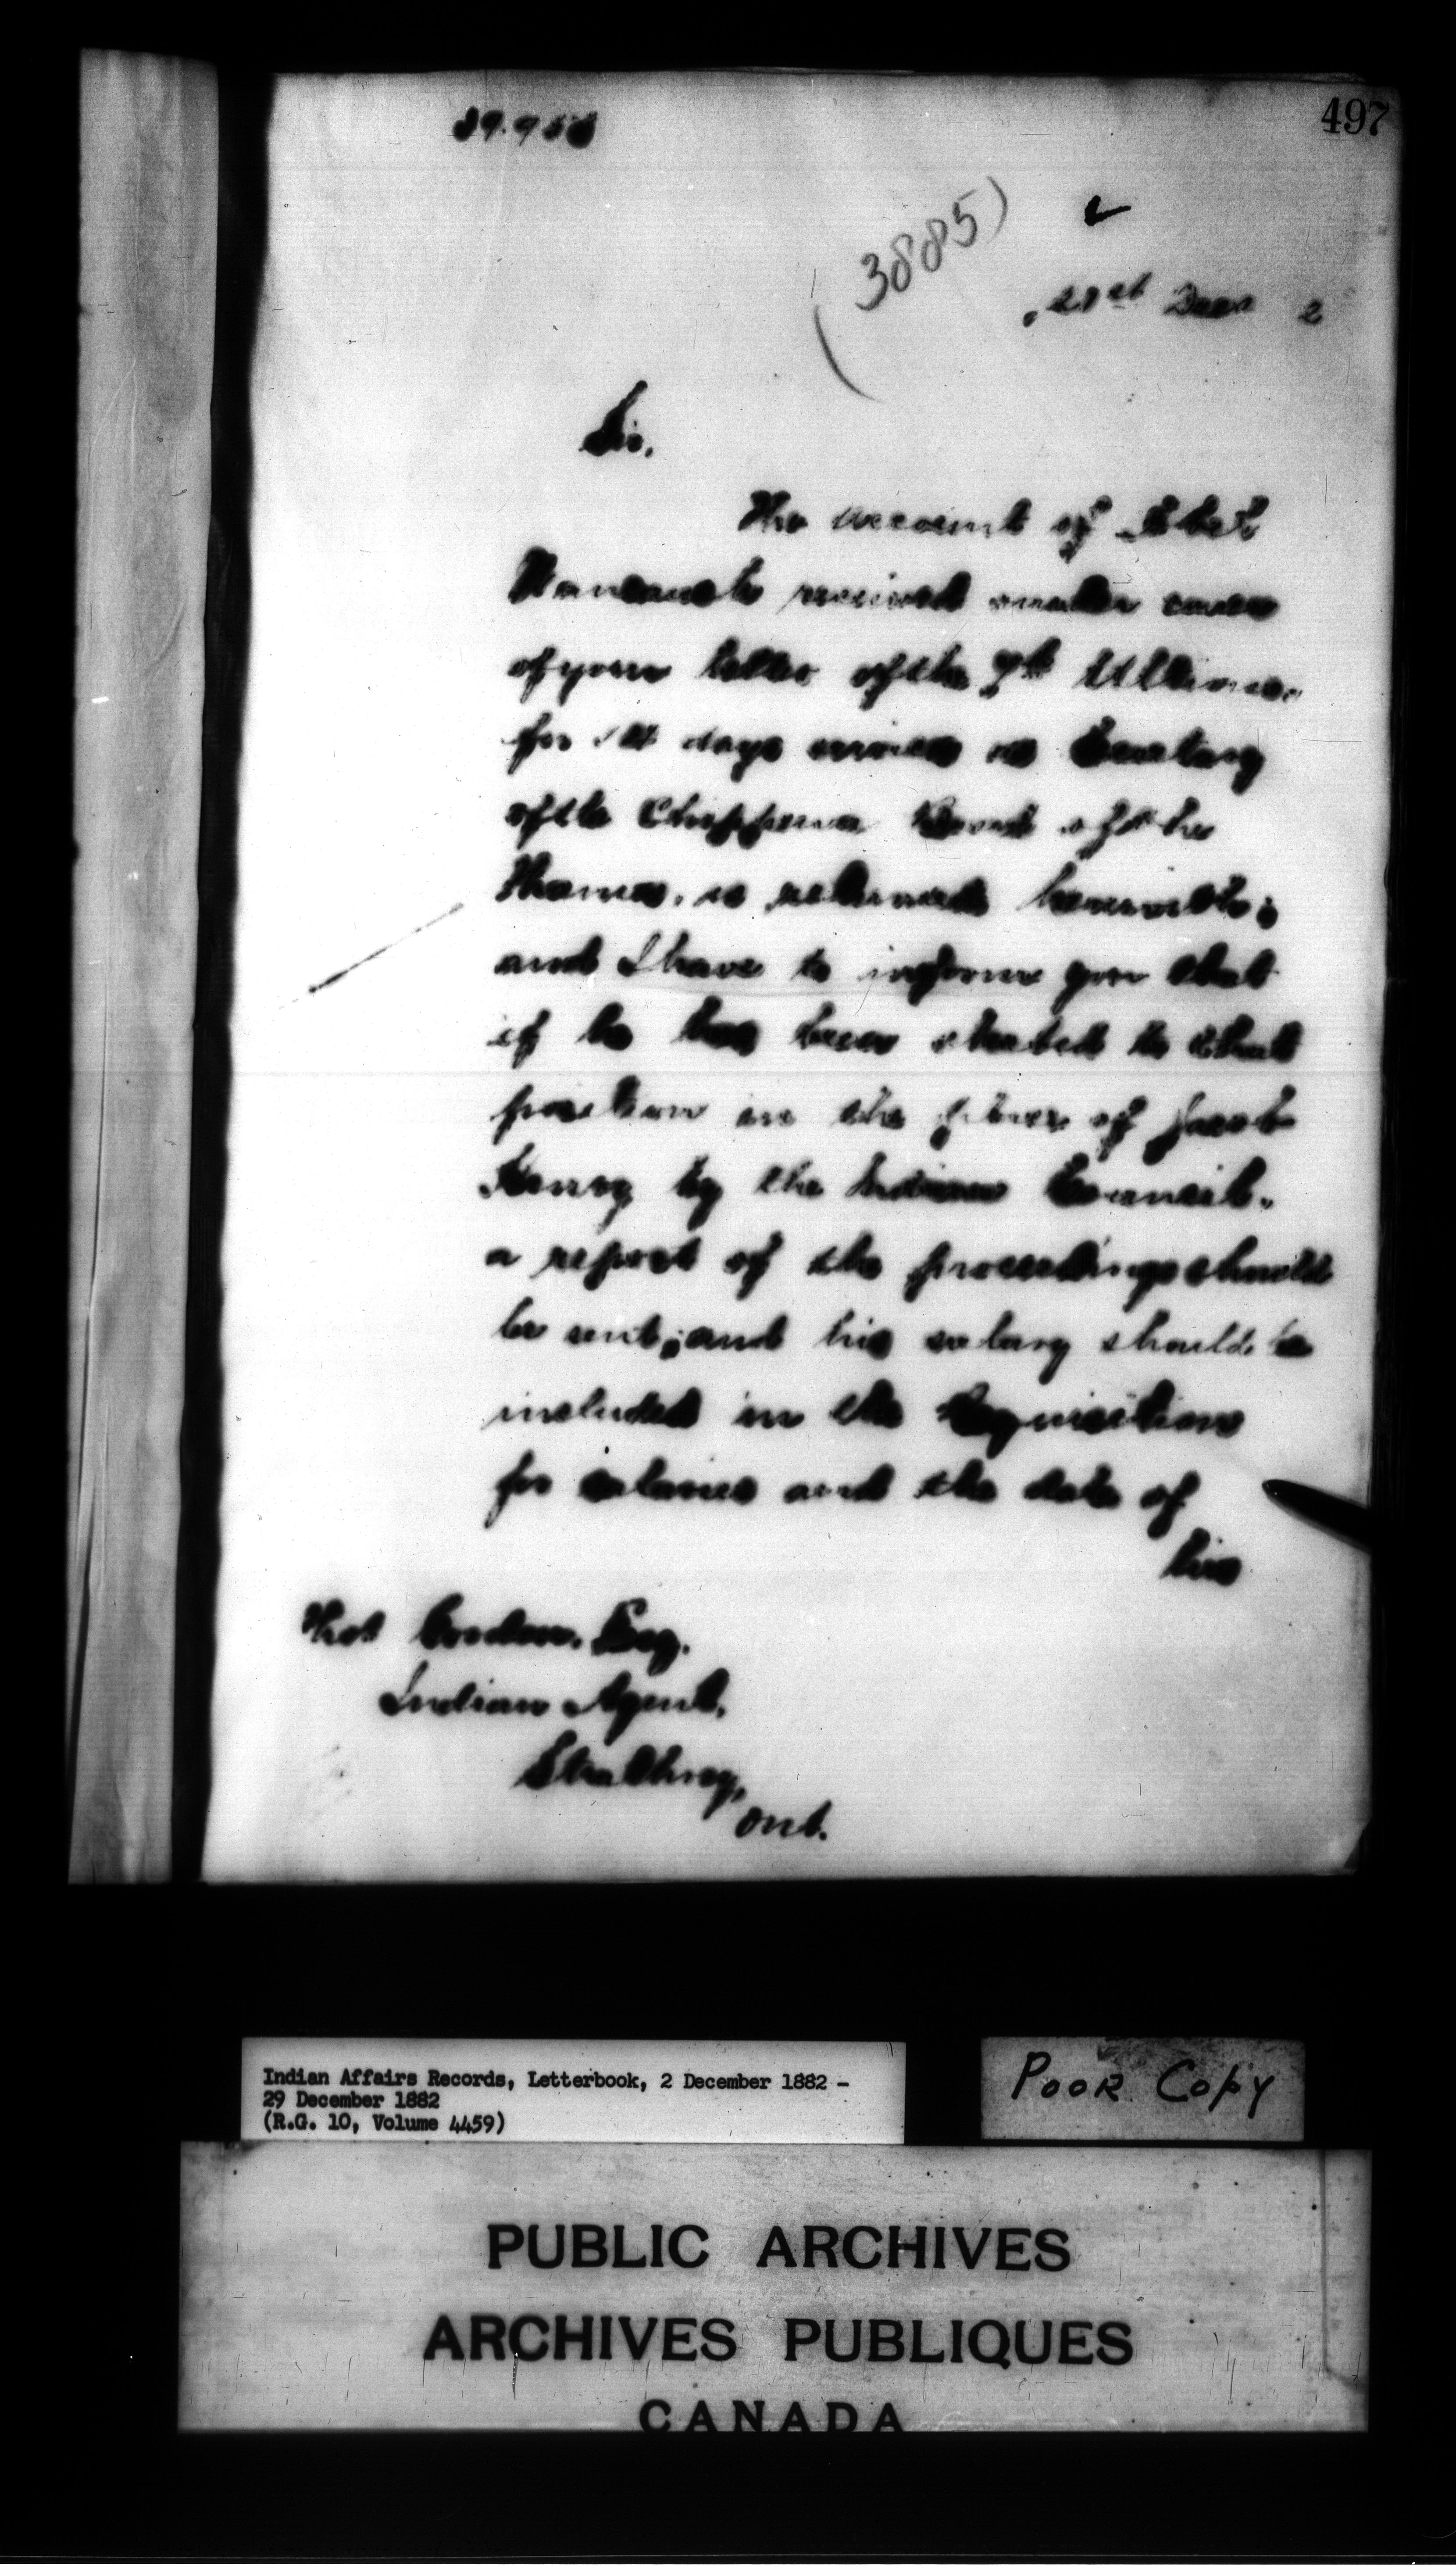 497
39.958
(3885)
21st Decr 2
Sir,
The account of
received under cover
of your letter of the 7th Ultimo,
for days services as Secretary
of the Chippewa Band of the
Thames, is returned herewith;
and I have to inform you that
if he has been elected to that
position in the place of Jacob
Henry by the Indian Council,
a report of the proceedings should
be sent; and his salary should be
included in the Requisition
for salaries and the date of
his
Thos Gordon, Esq.
Indian Agent,
Strathroy,
Ont.
Indian Affairs Records, Letterbook, 2 December 1882 -
29 December 1882
(R.G. 10, Volume 4459)
POOR COPY
PUBLIC ARCHIVES
ARCHIVES PUBLIQUES
CANADA